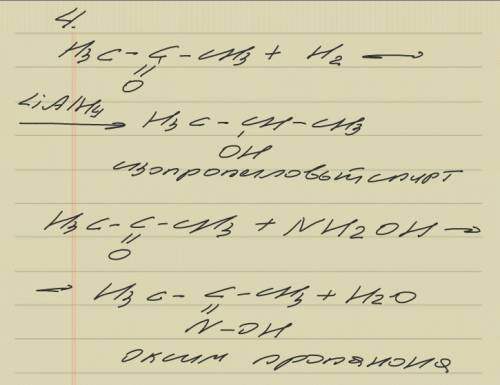 4.
H3C-C-CH3 + H2 →
O
LiAlH4
→ H3C-CH-CH3
OH
изопропиловый спирт
H3C-C-CH3 + NH2OH →
O
→ H3C-C-CH3 + H2O
N-OH
оксим пропанона